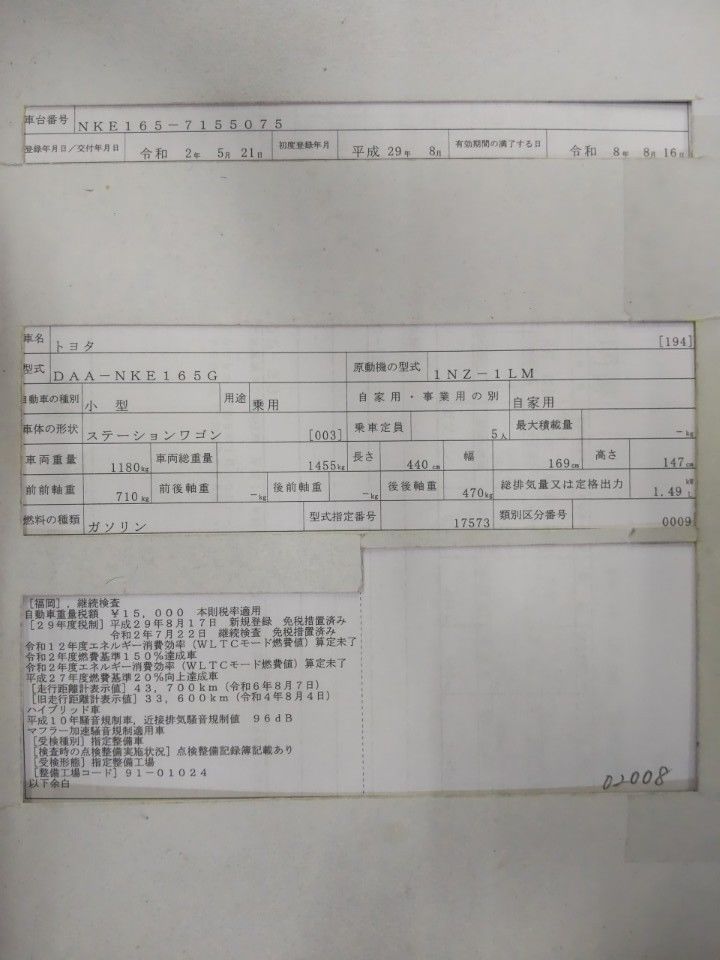 車台番号 NKE165-7155075
登録年月日/交付年月日 令和 2年 5月 21日 初度登録年月 平成 29年 8月 有効期間の満了する日 令和 8年 8月 16日
車名 トヨタ [194]
型式 DAA-NKE165G 原動機の型式 1NZ-1LM
自動車の種別 小型 用途 乗用 自家用・事業用の別 自家用
車体の形状 ステーションワゴン [003] 乗車定員 5人 最大積載量 -kg
車両重量 1180kg 車両総重量 1455kg 長さ 440cm 幅 169cm 高さ 147cm
前前軸重 710kg 前後軸重 -kg 後前軸重 -kg 後後軸重 470kg 総排気量又は定格出力 1.49 kW L
燃料の種類 ガソリン 型式指定番号 17573 類別区分番号 0009
[福岡],継続検査
自動車重量税額 ¥15,000 本則税率適用
[29年度税制]平成29年8月17日 新規登録 免税措置済み
令和2年7月22日 継続検査 免税措置済み
令和12年度エネルギー消費効率(WLTCモード燃費値)算定未了
令和2年度燃費基準150%達成車
令和2年度エネルギー消費効率(WLTCモード燃費値)算定未了
平成27年度燃費基準20%向上達成車
[走行距離計表示値]43,700km(令和6年8月7日)
[旧走行距離計表示値]33,600km(令和4年8月4日)
ハイブリッド車
平成10年騒音規制車,近接排気騒音規制値 96dB
マフラー加速騒音規制適用車
[受検種別]指定整備車
[検査時の点検整備実施状況]点検整備記録簿記載あり
[受検形態]指定整備工場
[整備工場コード]91-01024
以下余白
02008